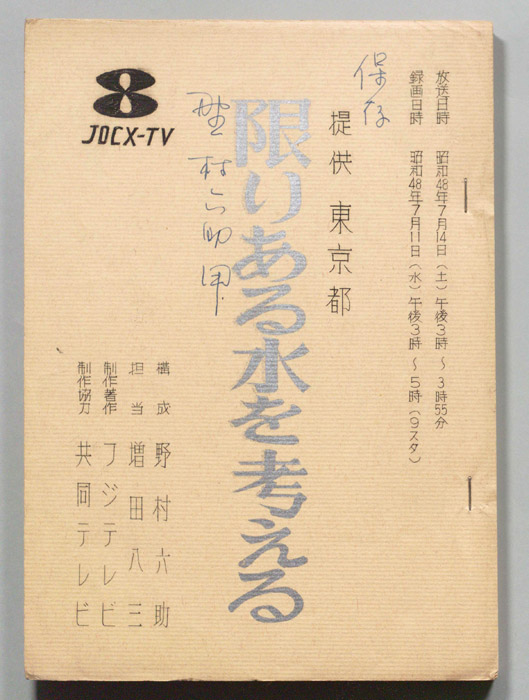 放送日時 昭和48年7月14日(土)午後3時〜3時55分
録画日時 昭和48年7月11日(水)午後3時〜5時(9スタ)
保存
提供 東京都
限りある水を考える
野村六助用
JOCX-TV
構成 野村六助
担当 増田八三
制作著作 フジテレビ
制作協力 共同テレビ